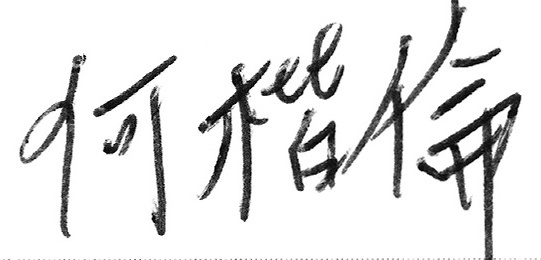 何楷倫